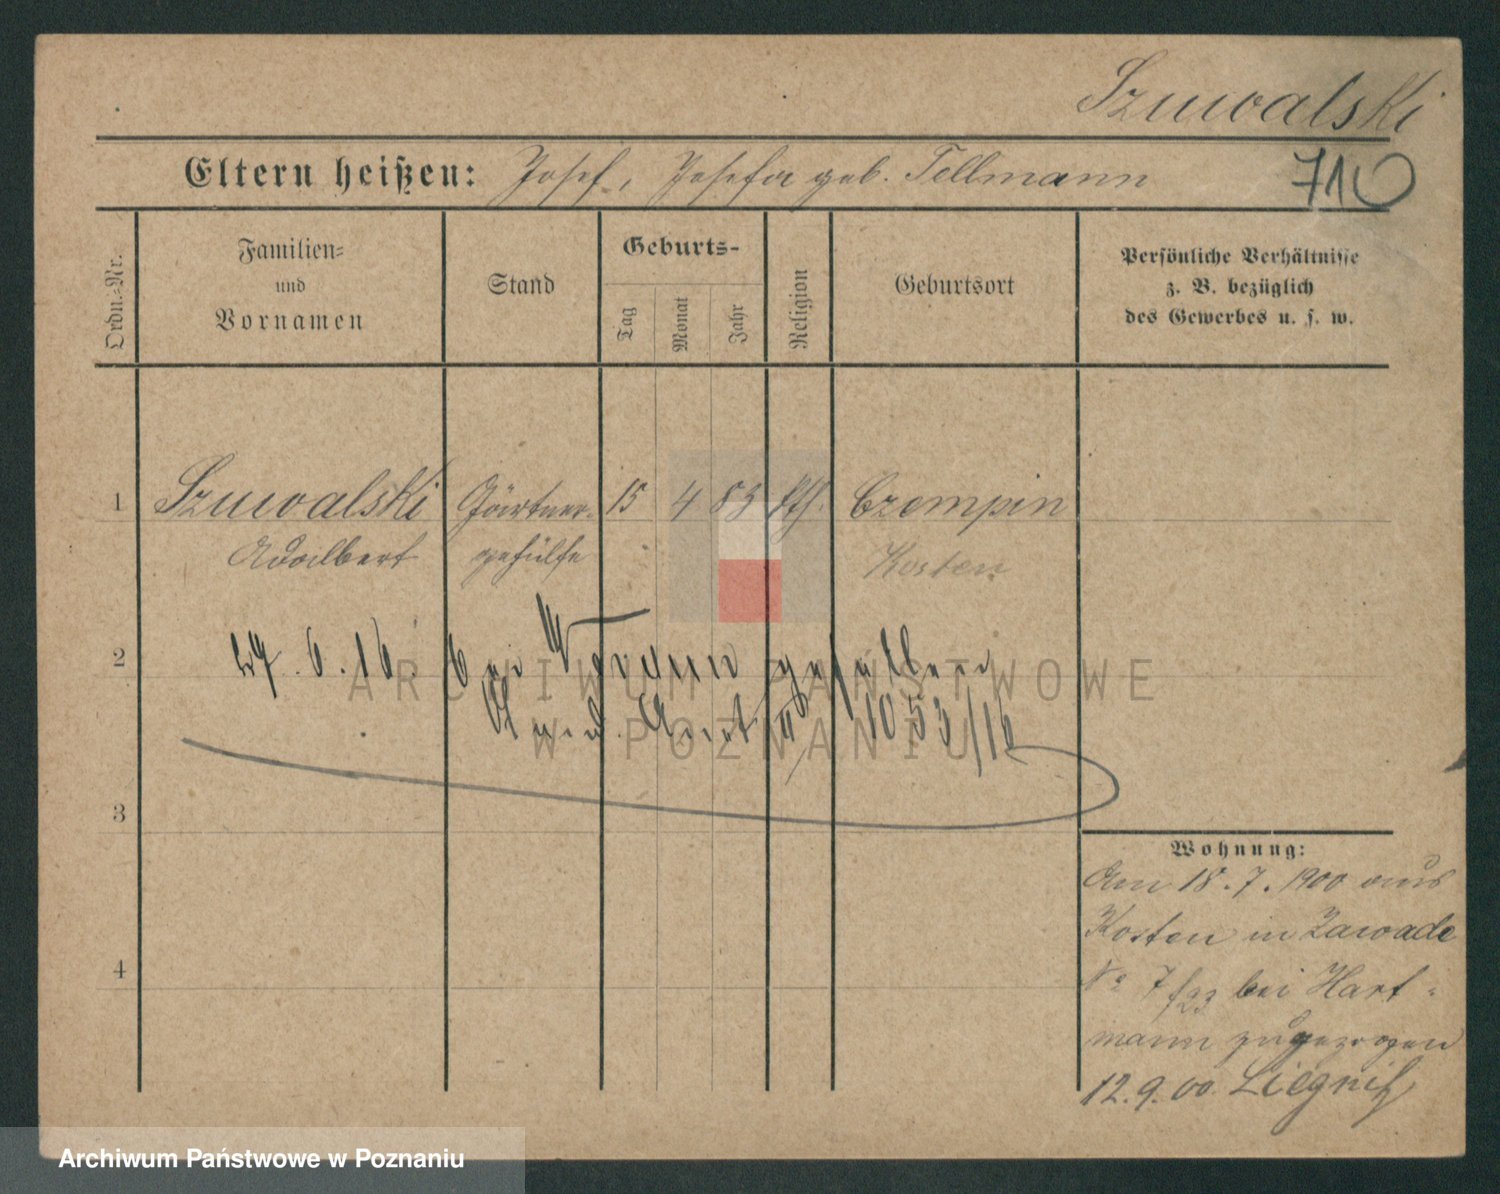 Szuwalski
Eltern heißen: Josef, Josefa geb. Tellmann
710
Ordn.-Nr.
Familien-
und
Vornamen
Stand
Geburts-
Tag
Monat
Jahr
Religion
Geburtsort
Persönliche Verhältnisse
z. B. bezüglich
des Gewerbes u. s. w.
1 Szuwalski Gärtner- 15 4 83 kth. Czempin
Adalbert gehülfe Kosten
2 27. 6. 16 bei Verdun gefallen
Amt II 1053/16
ARCHIWUM PAŃSTWOWE
W POZNANIU
3
4
Wohnung:
Am 18. 7. 1900 aus
Kosten in Zawade
No 7/23 bei Hart-
mann zugezogen
12. 9. 00. Liegnitz
Archiwum Państwowe w Poznaniu